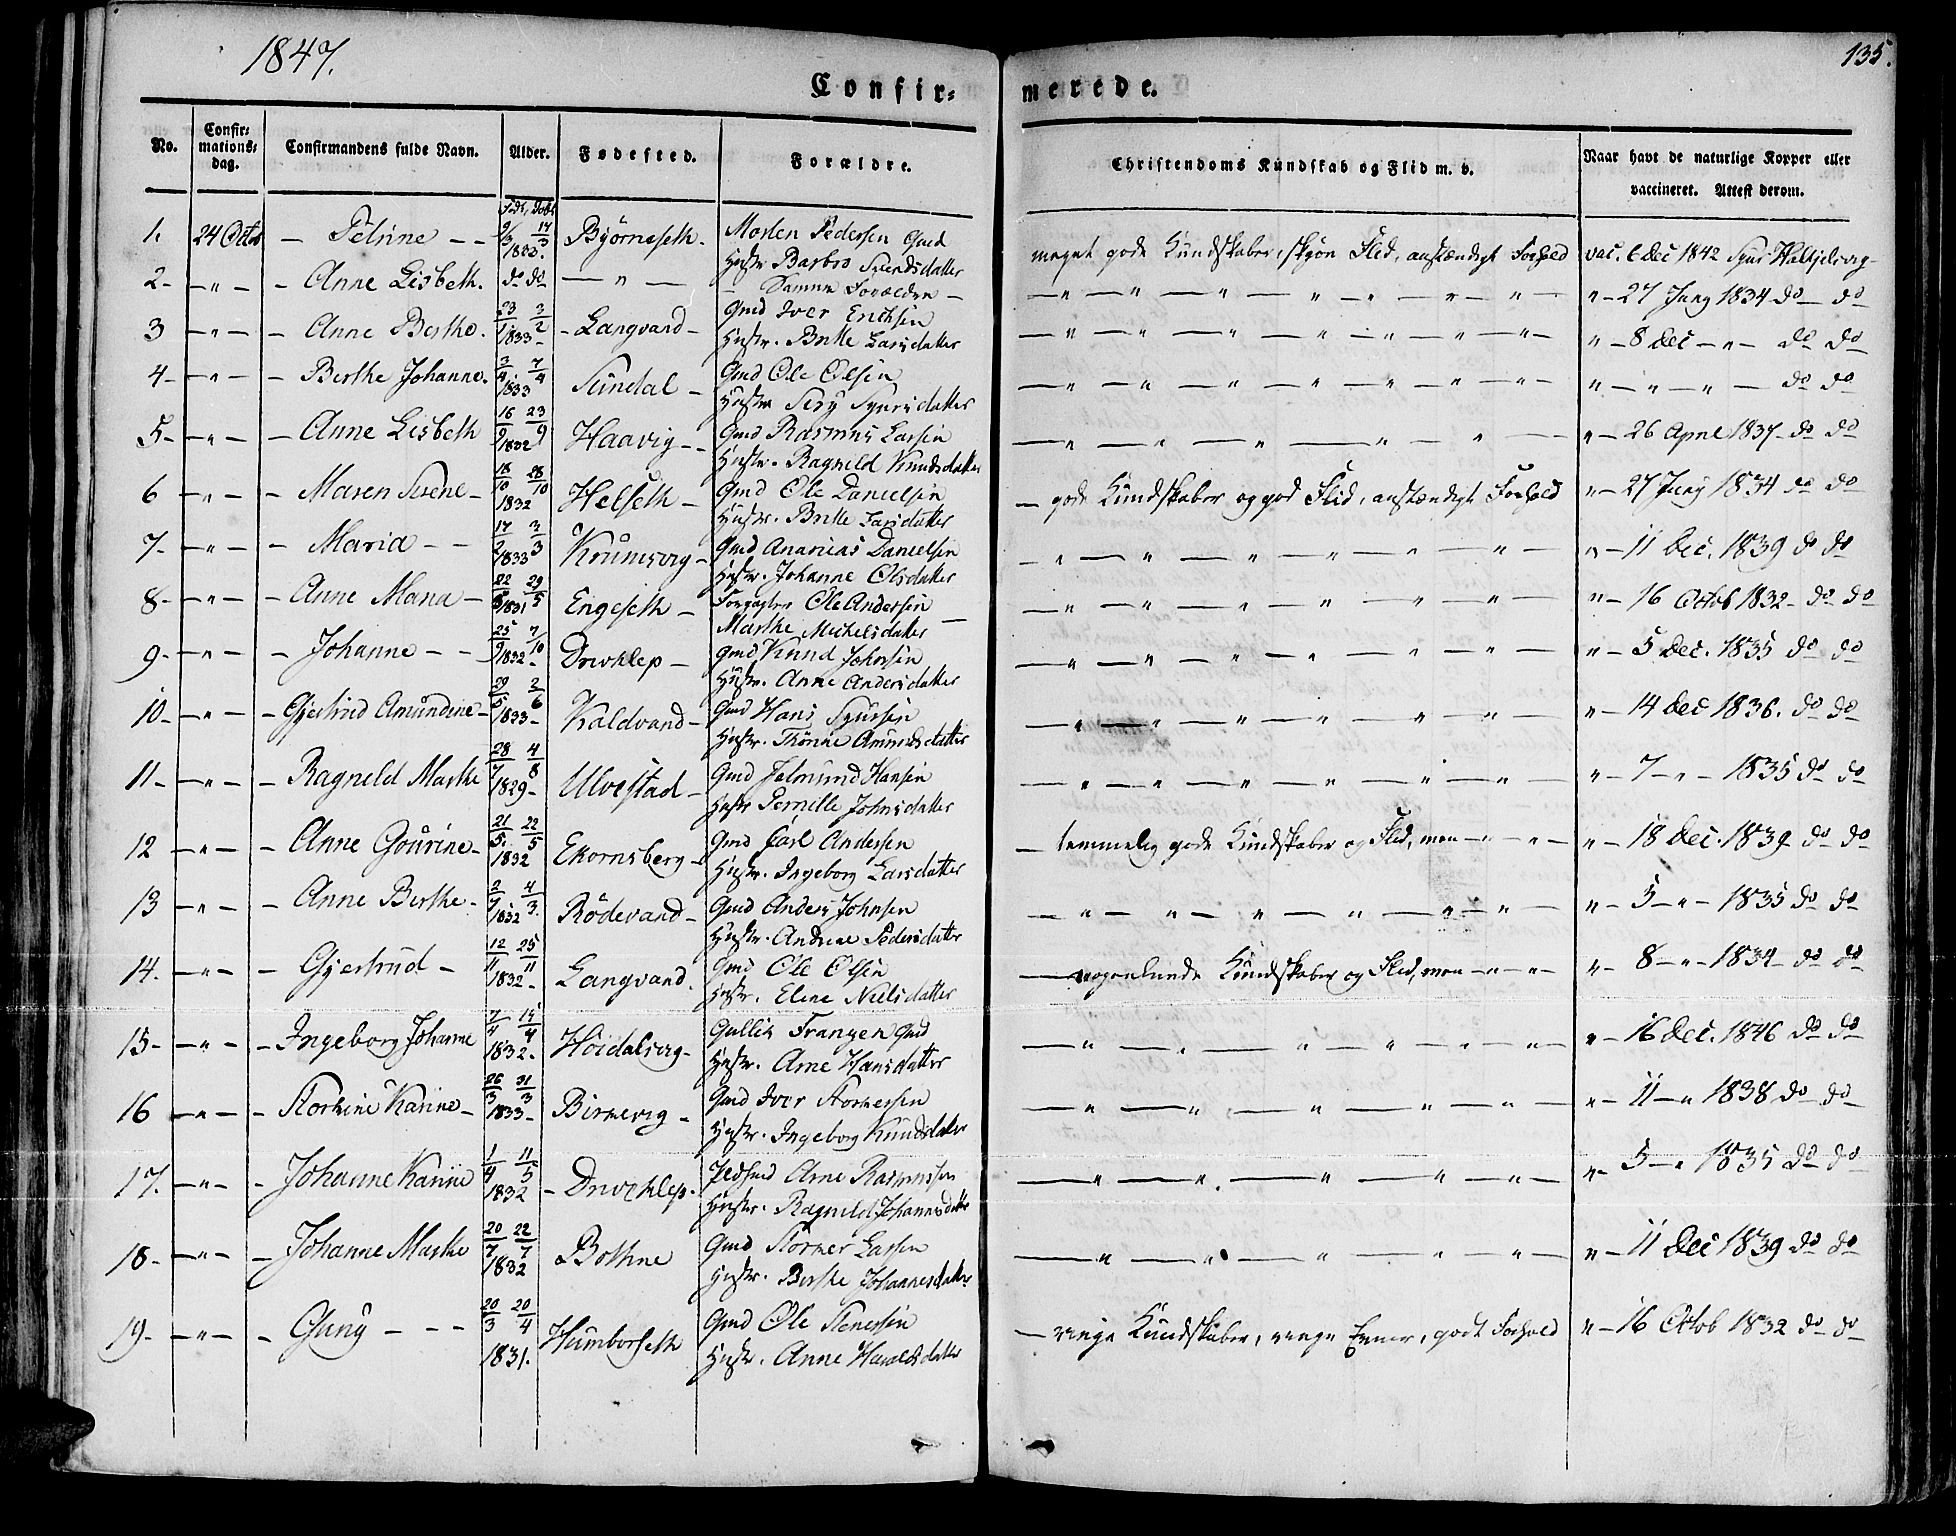 1847.
135.
Confir=
merede.
No.
Confir=
mations=
dag.
Confirmandens fulde Navn.
Alder.
Fødested.
Forældre.
Christendoms Kundskab og Flid m. v.
Naar havt de naturlige Kopper eller
vaccineret. Attest derom.
1. 24 Octob — Petrine — — 9/3 17/3 1833. Byörneseth. Morten Pedersen Gmd
Hustr. Barbro Svendsdatter
meget gode Kundskaber, skjøn Flid, anstændigt Forhold vac. 6 Dec 1842
2 — " — — Anne Lisbeth. do do — " — — Samme Forældre —
— " — " — " — " — " — " — " — 27 Juny 1834 do — do
3 — " — — Anne Berthe. 23/1 3/2 1833 — Langvand — Gmd Iver Erichsen
Hustr. Britte Larsdatter
— " — " — " — " — " — " — 8 Dec — " — do do
4 — " — — Berthe Johanne. 3/4 7/4 1833 Sundal — Gmd Ole Olsen
Hustr
— " — " — " — " — " — " — " — " — " — do do
5 — " — — Anne Lisbeth 16/9 23/9 1832 Haavig — Gmd Rasmus Larsen
Hustr. Ragnild Knudsdatter
— " — " — " — " — " — " — 26 April 1837 do do
6 — " — — Maren Serene — 18/10 28/10 1832 Helseth — Gmd Ole Danielsen
Hustr. Britte Larsdatter
— gode Kundskaber og god Flid, anstændigt Forhold " — 27 Juny 1834 do do
7 — " — — Maria — — 17/2 3/3 1833 Krumsvig — Gmd Ananias Danielsen
Hustr. Johanne Olsdatter
— " — " — " — " — " — " — " — 11 Dec. 1839 do do
8 — " — — Anne Maria — 22/5 29/5 1831 Engeseth — Ole Andersen
Marthe Michelsdatter —
— " — " — " — " — " — " — " — 16 Octob 1832 — do do
9 — " — — Johanne — — 25/9 7/10 1832 — Drivklep — Gmd Knud Johnsen
Hustr. Anne Andersdatter
— " — " — " — " — " — " — " — 5 Dec. 1835 do do
10 — " — — Gjertrud Amundine — 29/5 2/6 1833 — Kaldvand — Gmd Hans Sjursen
Hustr. Thorine Amundsdatter
— " — " — " — " — " — " — " — 14 Dec 1836. do do
11 — " — — Ragnild Marthe 28/7 4/8 1829 — Ulvestad — Gmd Jetmund Hansen
Hustr Pernille Johnsdatter
— " — " — " — " — " — " — " — 7 — " — 1835 do do
12 — " — — Anne Gourine — 21/5 22/5 1832 Ekornsberg — Gmd Carl Andersen
Hustr. Ingeborg Larsdatter
— temmelig gode Kundskaber og Flid, men — " — " — " — 18 Dec. 1839 do do
13 — " — — Anne Berthe — 4/3 1832 Rödevand — Gmd Anders Johnsen
Hustr. Andrine Pedersdatter
— " — " — " — " — " — " — " — 5 — " — 1835 do do
14. — " — — Gjertrud — 12/11 25/11 1832 — Langvand. Gmd Ole Olsen
Hustr. Elene Nielsdatter
— nogenlunde Kundskaber og Flid, men — " — " — " — 8 — " — 1834 — do do
15 — " — — Ingeborg Johanne 7/4 15/4 1832 — Höidalsvig — Gullik Frangen Gmd
Hustr. Arne Hansdatter
— " — " — " — " — " — " — " — 16 Dec. 1846 do do
16 — " — — Karine — 26/3 31/3 1833 — Birkevig — Gmd Iver
Hustr. Ingeborg Knudsdatter
— " — " — " — " — " — " — " — 11 — " 1838 do do
17. — " — — Johanne Karine 1/4 11/5 1832 — Drivklep. Arne Rasmussen
Hustr. Ragnild Johannesdatter
— " — " — " — " — " — " — 5 — " 1835 do do
18 — " — — Johanne Marthe 20/7 22/7 1832 Bothne Gmd Larsen
Hustr. Berthe Johannesdatter
— " — " — " — " — " — " — 11 Dec 1839 do do
19 — " — — Guny — — — 20/3 20/4 1831. Humborseth Gmd Ole Stenersen
Hustr. Anne Haraldsdatter
— ringe Kundskaber, ringe Evner, godt Forhold " — 16 Octob 1832 do do